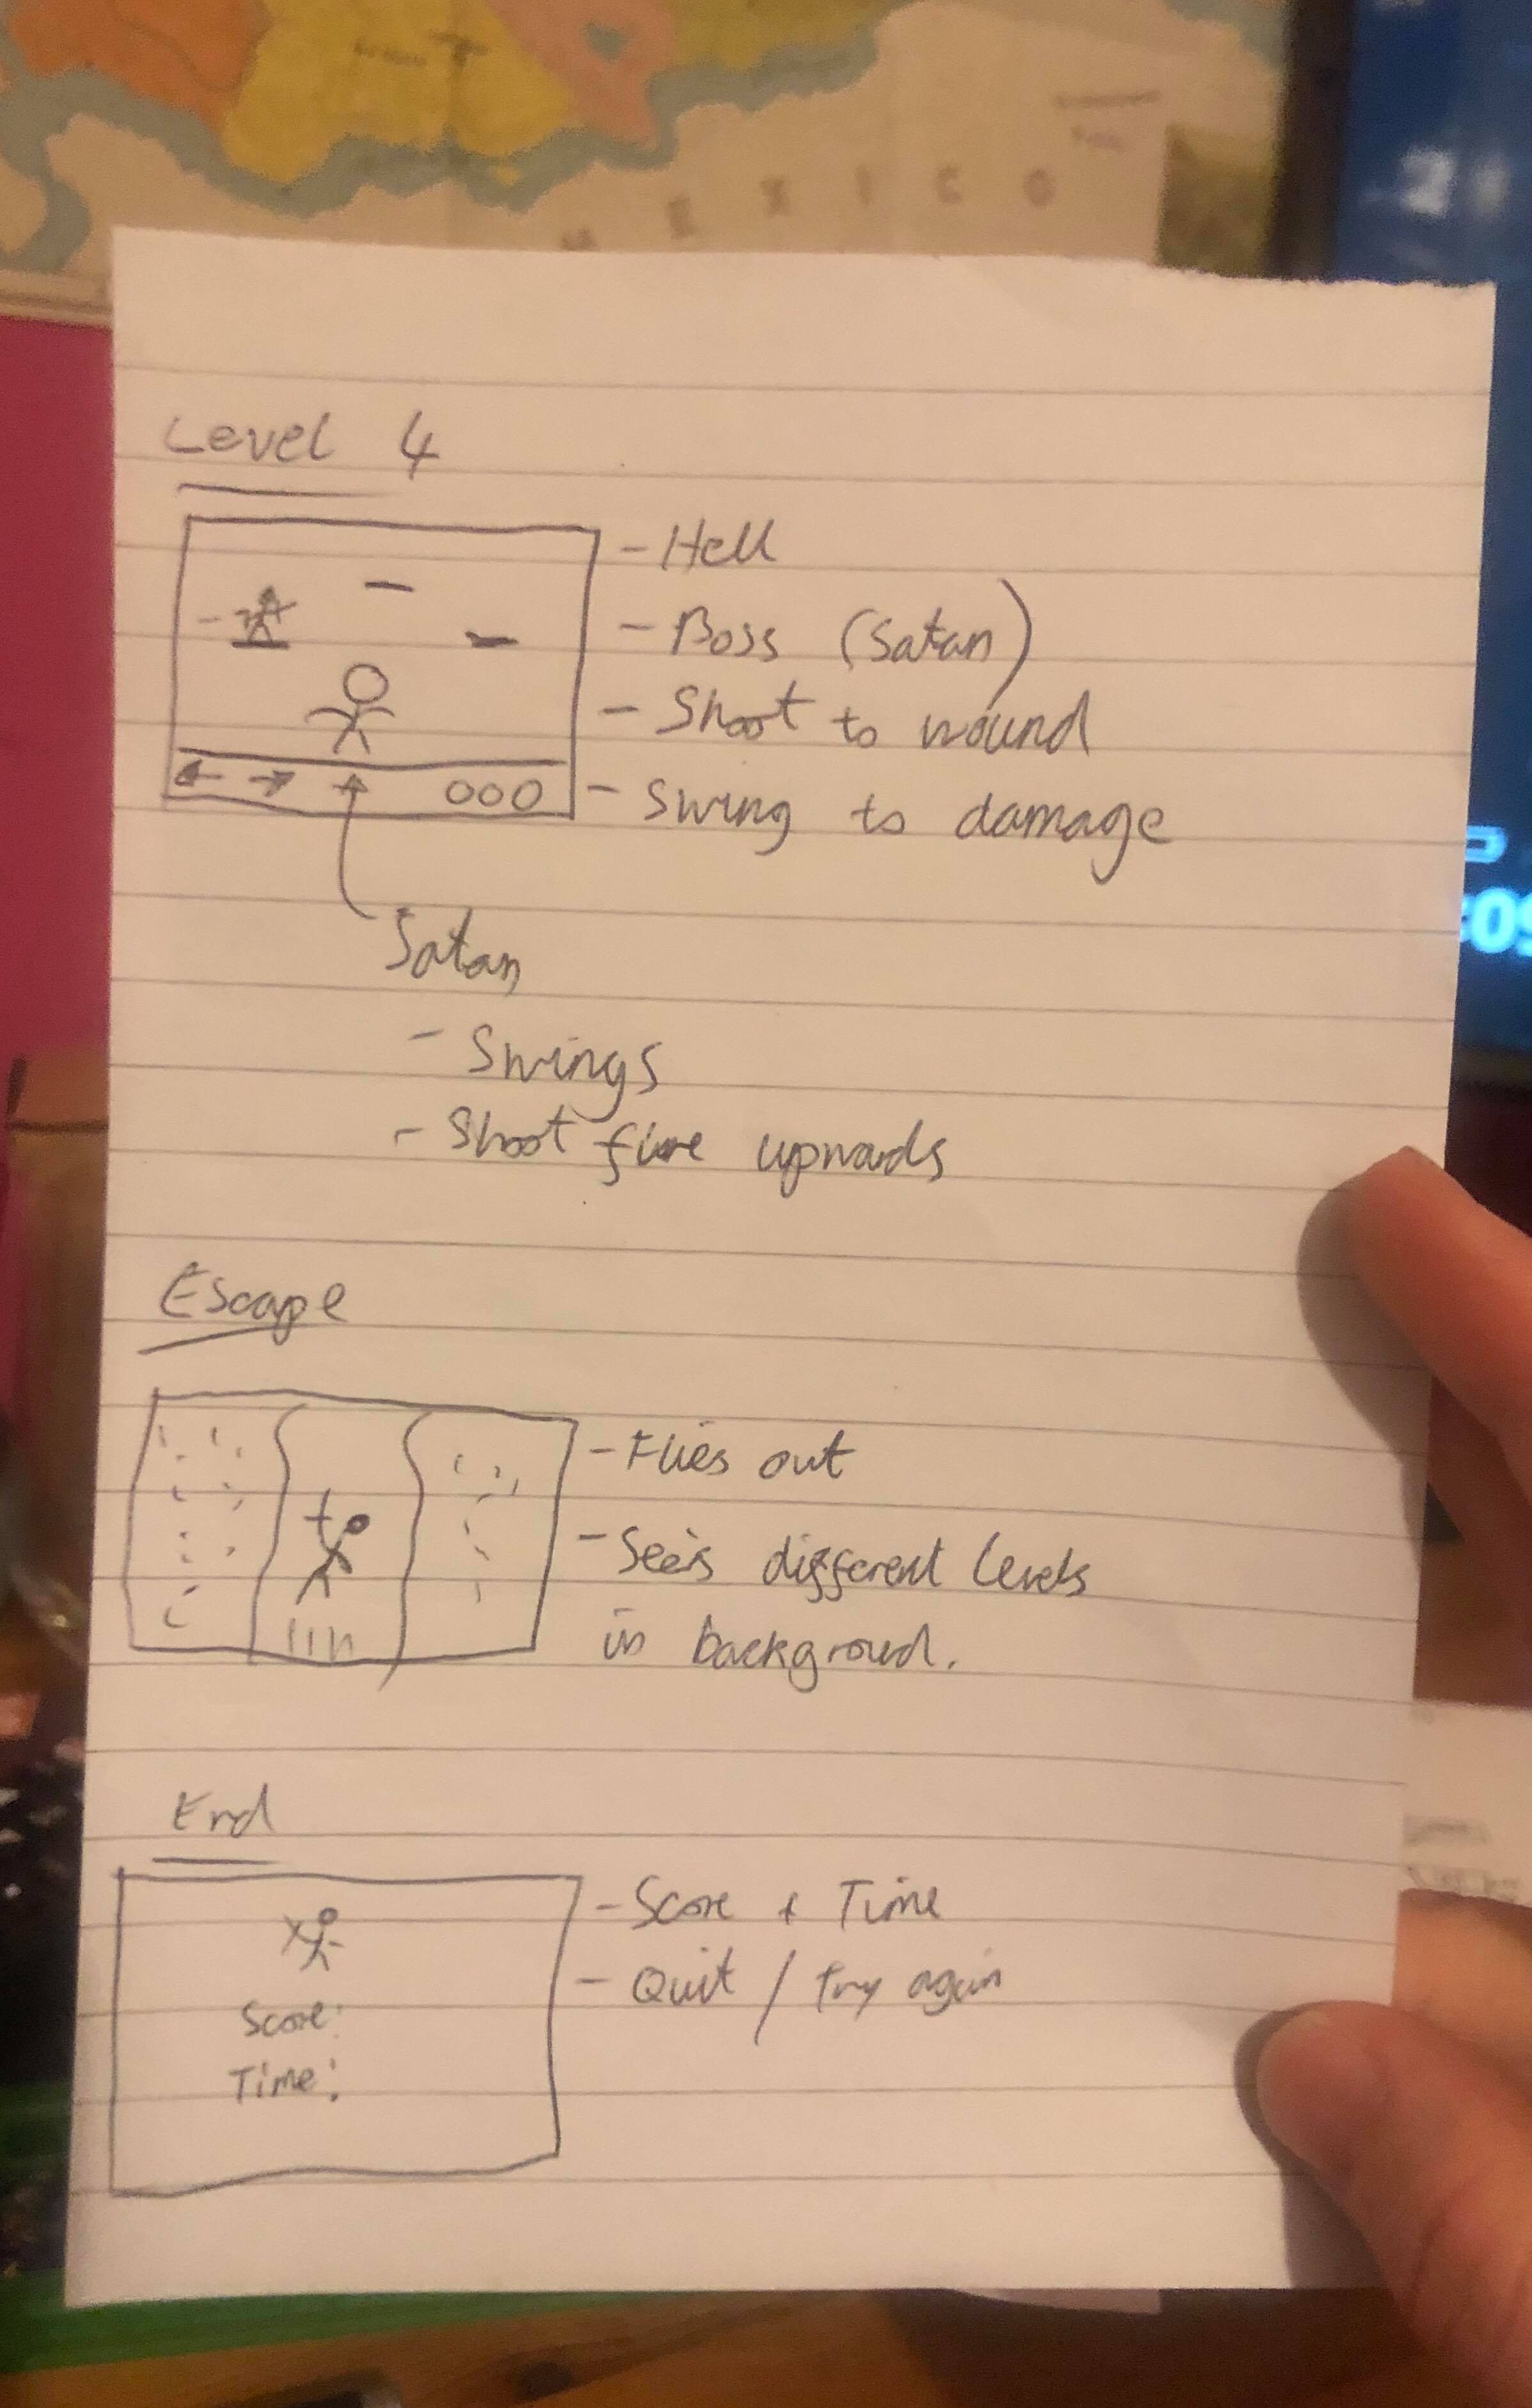 MEXICO
Level 4
- Hell
- Boss (Satan)
- Shoot to wound
- Swing to damage
Satan
- Swings
- Shoot fire upwards
Escape
- Flies out
- Sees different levels
in background.
End
- Score + Time
- Quit / Try again
Score:
Time: